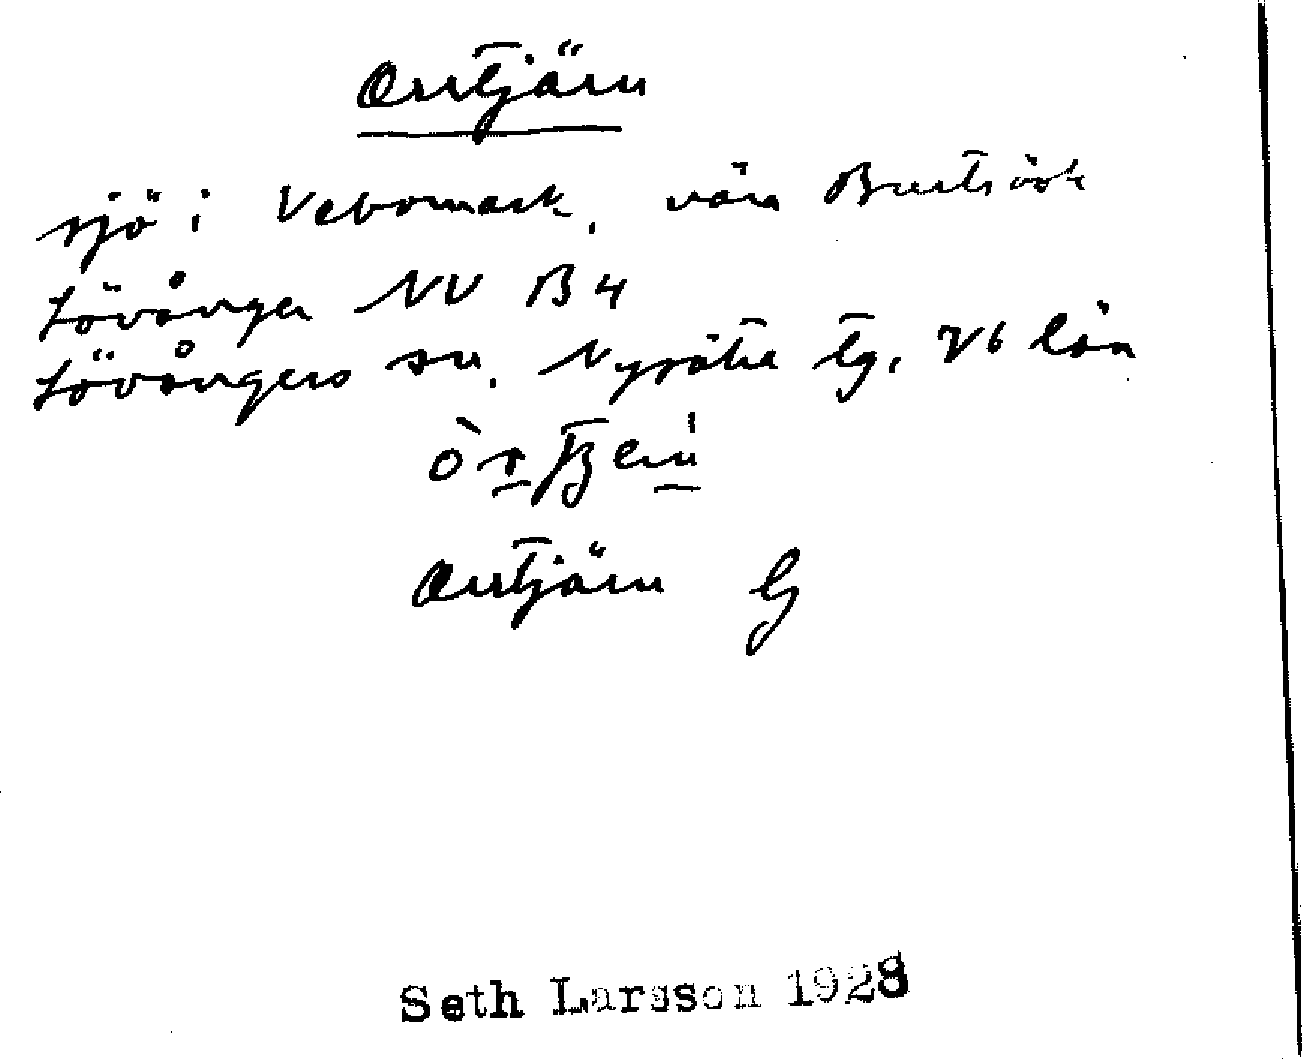 Orrtjärn
sjö i Vebomark, nära Burträsk
Lövånger NV B 4
Lövångers sn. Nysätra tg. Vb län
Orrtjärn G
Seth Larsson 1928